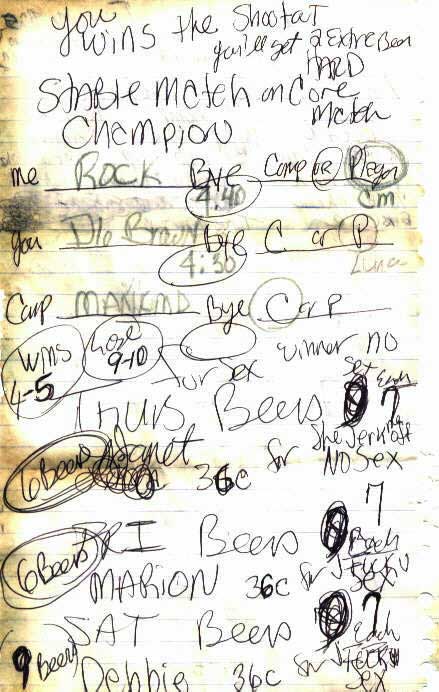 you wins the Shootout
you'll get 2 Extra Beer
HARD
Stable Match on Core
Match
Champion
me Rock Bye Comp or Player
4:40 cm
you Dlo Brown Bye C or P
4:30 Luna
Comp MANKIND Bye C or P
wins 4-5
Lose 9-10
for Sex winner no
Sex
Thurs Beers 7 Each
6 Beers Janet 36c for
No Sex
7
FRI Beers Each
6 Beers
MARION 36c for
Sex
SAT Beers 7 Each
9 Beers
Debbie 36c for
Sex